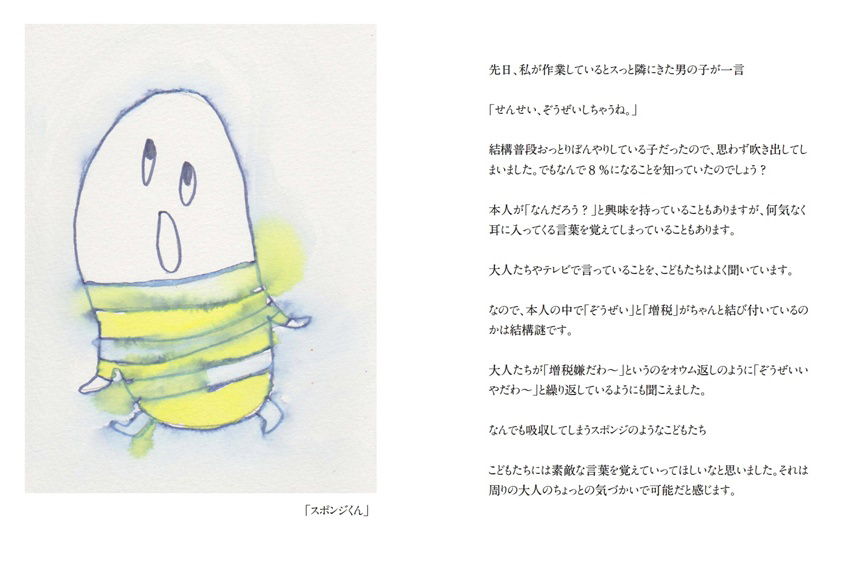 先日、私が作業しているとスっと隣にきた男の子が一言
「せんせい、ぞうぜいしちゃうね。」
結構普段おっとりぼんやりしている子だったので、思わず吹き出してし
まいました。でもなんで8%になることを知っていたのでしょう?
本人が「なんだろう?」と興味を持っていることもありますが、何気なく
耳に入ってくる言葉を覚えてしまっていることもあります。
大人たちやテレビで言っていることを、こどもたちはよく聞いています。
なので、本人の中で「ぞうぜい」と「増税」がちゃんと結び付いているの
かは結構謎です。
大人たちが「増税嫌だわ〜」というのをオウム返しのように「ぞうぜいい
やだわ〜」と繰り返しているようにも聞こえました。
なんでも吸収してしまうスポンジのようなこどもたち
こどもたちには素敵な言葉を覚えていってほしいなと思いました。それは
周りの大人のちょっとの気づかいで可能だと感じます。
「スポンジくん」